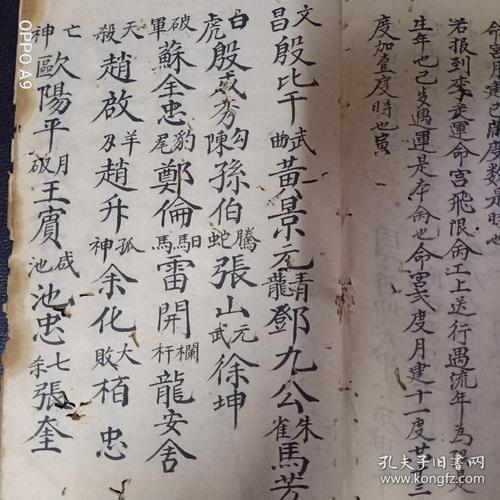 若报到李長運命宮飛限命工上送行遇流年為
生年也己岁遇運是本命也命宮弍度月建十一度廿三
度加壹度時也寅
文昌殷比干武曲黃景元青龍鄧九公朱雀馬芳
白虎殷成秀勾陳孫伯騰蛇張山元武徐坤
破軍蘇全忠豹尾鄭倫馹馬雷開欄杆龍安舍
天殺趙啟羊刃趙升孤神余化大敗栢忠
亡神歐陽平月破王賓咸池池忠七杀張奎
OPPO A9
孔夫子旧书网
kongfz.com